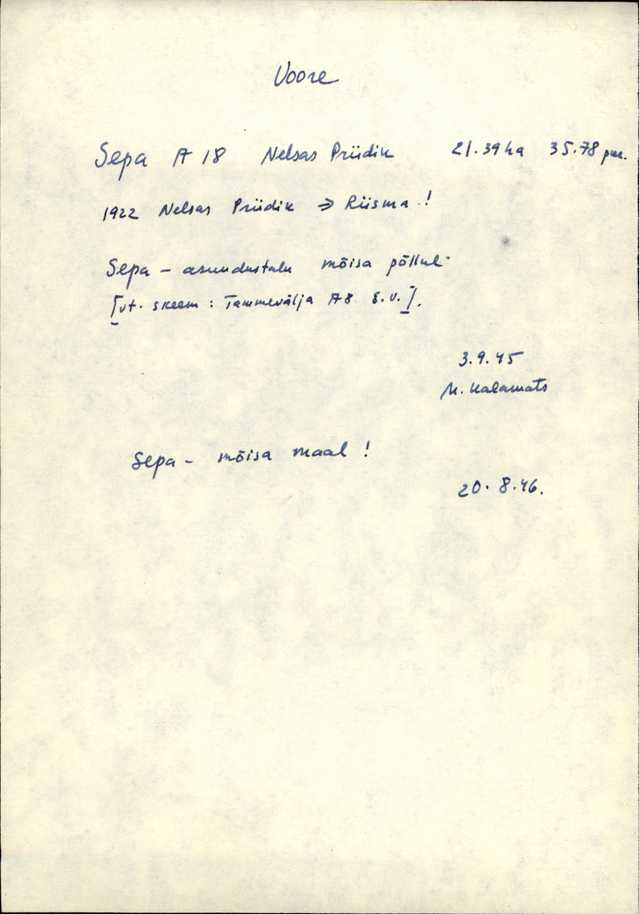 Voore
Sepa A 18 Nelsas Priidik 21.39 ha 35.78 par.
1922 Nelsas Priidik → Riisma!
Sepa – asundustalu mõisa põllul
[vt. skeem: Tammevälja A8 s.v.].
3.9.45
M. Kalamats
Sepa – mõisa maal!
20.8.46.